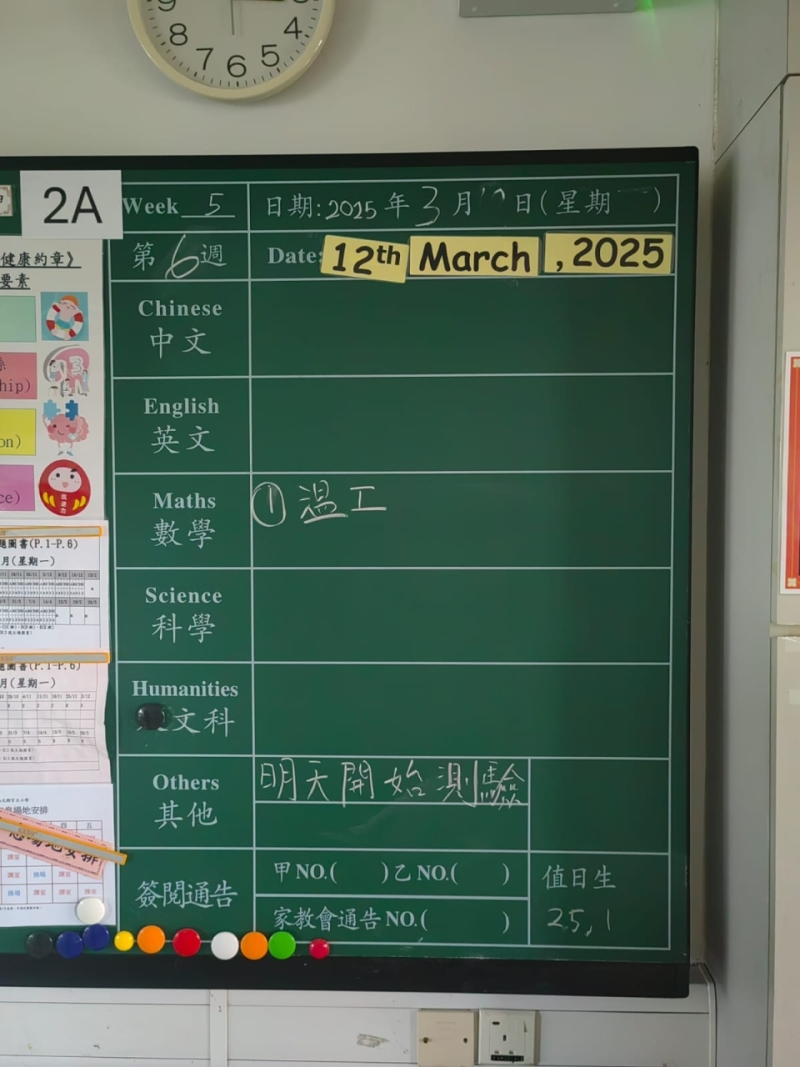 8 7 6 5 4
2A
Week 5
日期: 2025 年 3 月 日(星期 )
第 6 週
Date: 12th March , 2025
Chinese
中文
English
英文
Maths
數學
① 溫工
Science
科學
Humanities
文科
Others
其他
明天開始測驗
簽閱通告
甲 NO.( ) 乙 NO.( )
家教會通告 NO.( )
值日生
25, 1
健康約章》
要素
hip)
on)
ce)
圖書(P.1-P.6)
月(星期一)
圖書(P.1-P.6)
月(星期一)
場地安排
場地安排